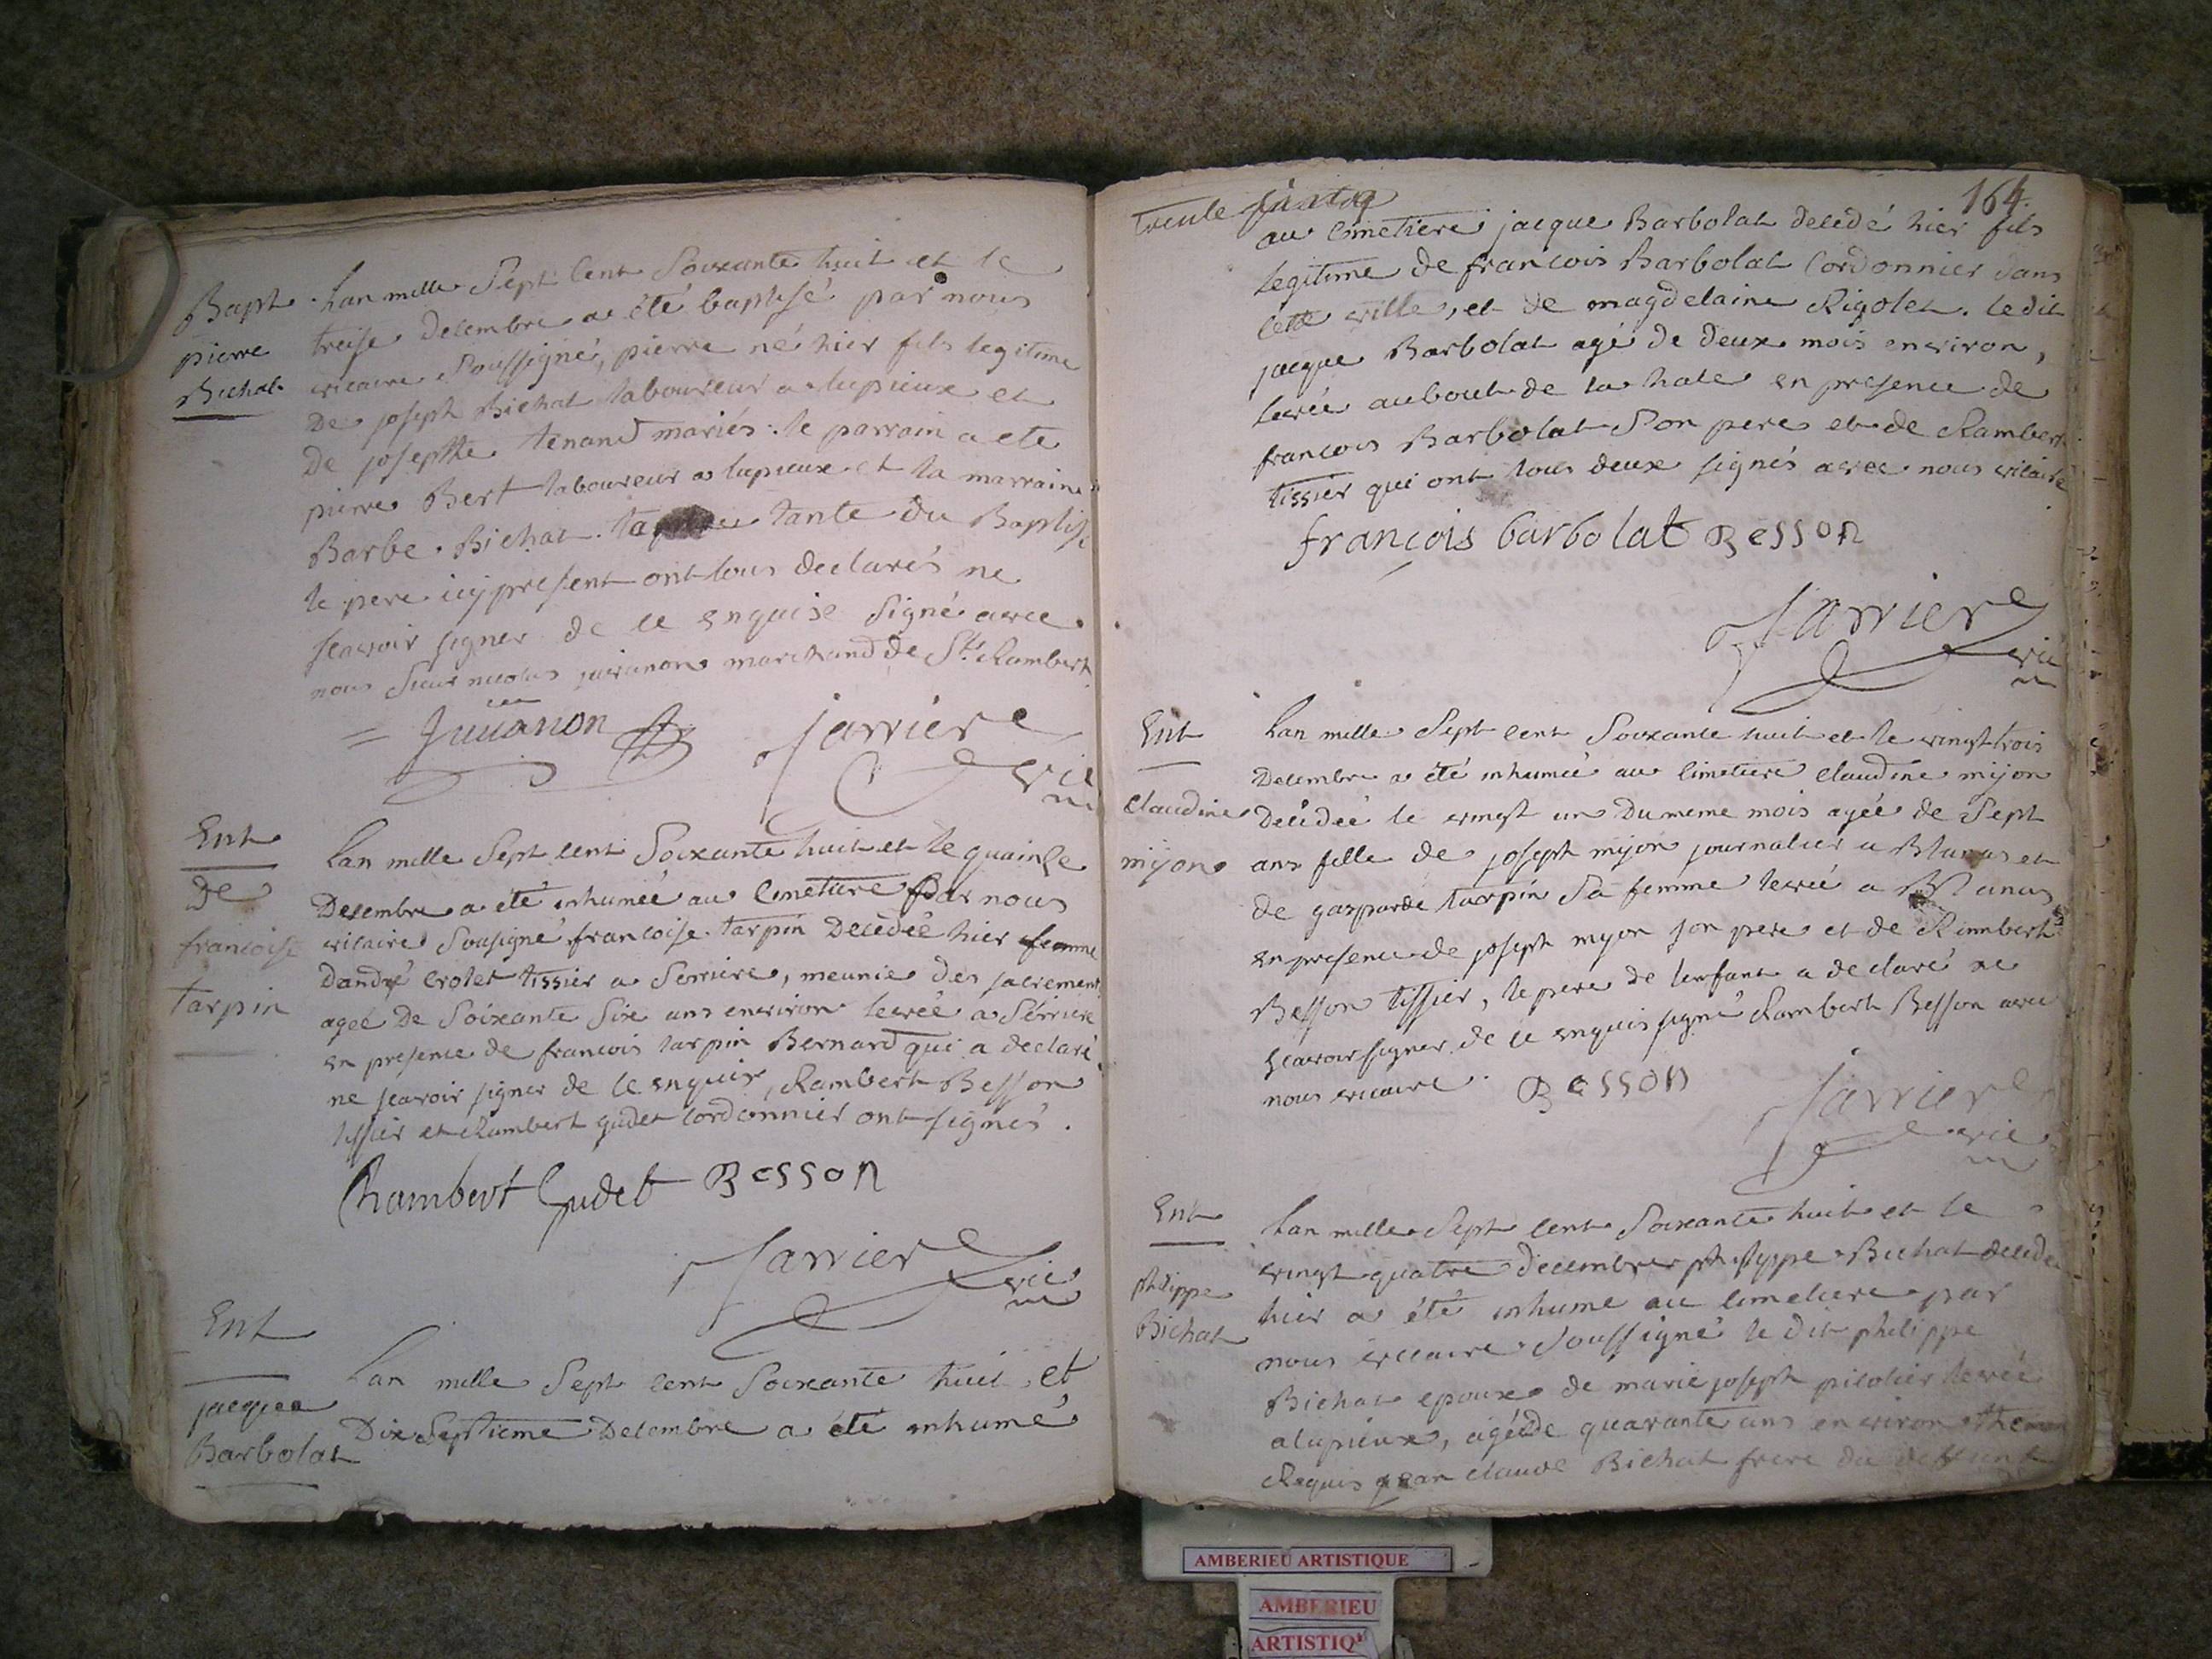 Bapt
pierre
Bichat
Lan mille Sept Cent Soixante huit et le
treise Decembre a été baptisé par nous
vicaire Soussigné, pierre né hier fils legitime
De joseph Bichat laboureur a lupieux et
De josephte tenand mariés. le parrain a ete
pierre Bert laboureur a lupieux et la marraine
Barbe Bichat tante du Baptisé
le pere icy present ont tous declarés ne
scavoir signer de ce enquise Signé avec
nous Sieur nicolas juvanon marchand de St Rambert
= Juvanon Jarrier
vic
Ent
De
francoise
tarpin
Lan mille Sept cent Soixante huit et le quainse
Decembre a été inhumée au Cimetiere par nous
vicaire Sousigné francoise tarpin Decedée hier femme
Dandré crolet tissier a Serriere, meunie des sacrement
ageé De Soixante Six ans environ levée a Serriere
en presence de francois tarpin Bernard qui a declaré
ne scavoir signer de ce enquis, Rambert Besson
tissier et Rambert gudet cordonnier ont signés.
Rambert Gudet Besson
Jarrier
vic
Ent
jacque
Barbolat
Lan mille Sept cent Soixante huit et
Dix Septieme Decembre a été inhumé
trente 164.
au Cimetiere jacque Barbolat decedé hier fils
legitime de francois Barbolat Cordonnier dans
cette ville, et de magdelaine Rigolet. ledit
jacque Barbolat agé de deux mois environ,
levée au bout de la hale en presence de
francois Barbolat Son pere et de Rambert
tissier qui ont tous deux signés avec nous vicaire
françois barbolat Besson
Jarrier
vic
Ent
claudine
mijon
Lan mille Sept cent Soixante huit et le vingt trois
Decembre a été inhumée au Cimetiere claudine mijon
Decédeé le vingt un Du meme mois ageé de Sept
ans fille de joseph mijon journalier a Blanas et
de gasparde tarpin Sa femme levée a Blanas
en presence de joseph mijon son pere et de Rambert
Besson tissier, le pere de lenfant a declaré ne
scavoir signer de ce enquis signé Rambert Besson avec
nous vicaire. Besson
Jarrier
vic
Ent
philippe
Bichat
Lan mille Sept cent Soixante huit et le
vingt quatre decembre philippe Bichat decede
hier a été inhume au Cimetiere par
nous vicaire Soussigné le dit philippe
Bichat epoux de marie joseph pilolier levée
a lupieux, agé de quarante ans environ
Requis jean claude Bichat frere du deffunt
AMBERIEU ARTISTIQUE
AMBERIEU
ARTISTIQ